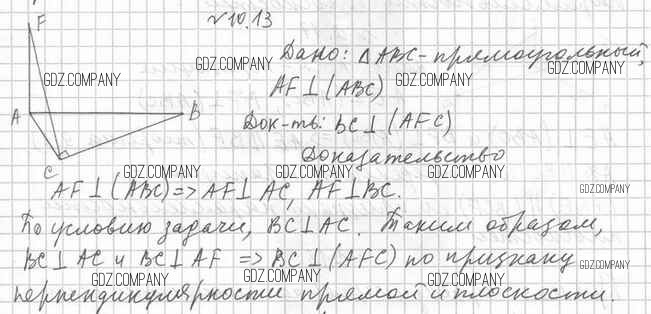 №10.13
F
Дано: △ABC - прямоугольный,
GDZ.COMPANY GDZ.COMPANY GDZ.COMPANY GDZ.COMPANY
AF⊥(ABC)
A B
Док-ть: BC⊥(AFC)
Доказательство
C
GDZ.COMPANY GDZ.COMPANY GDZ.COMPANY
AF⊥(ABC)=>AF⊥AC, AF⊥BC.
GDZ.COMPANY
По условию задачи, BC⊥AC. Таким образом,
BC⊥AC и BC⊥AF => BC⊥(AFC) по признаку
GDZ.COMPANY GDZ.COMPANY GDZ.COMPANY GDZ.COMPANY
перпендикулярности прямой и плоскости.